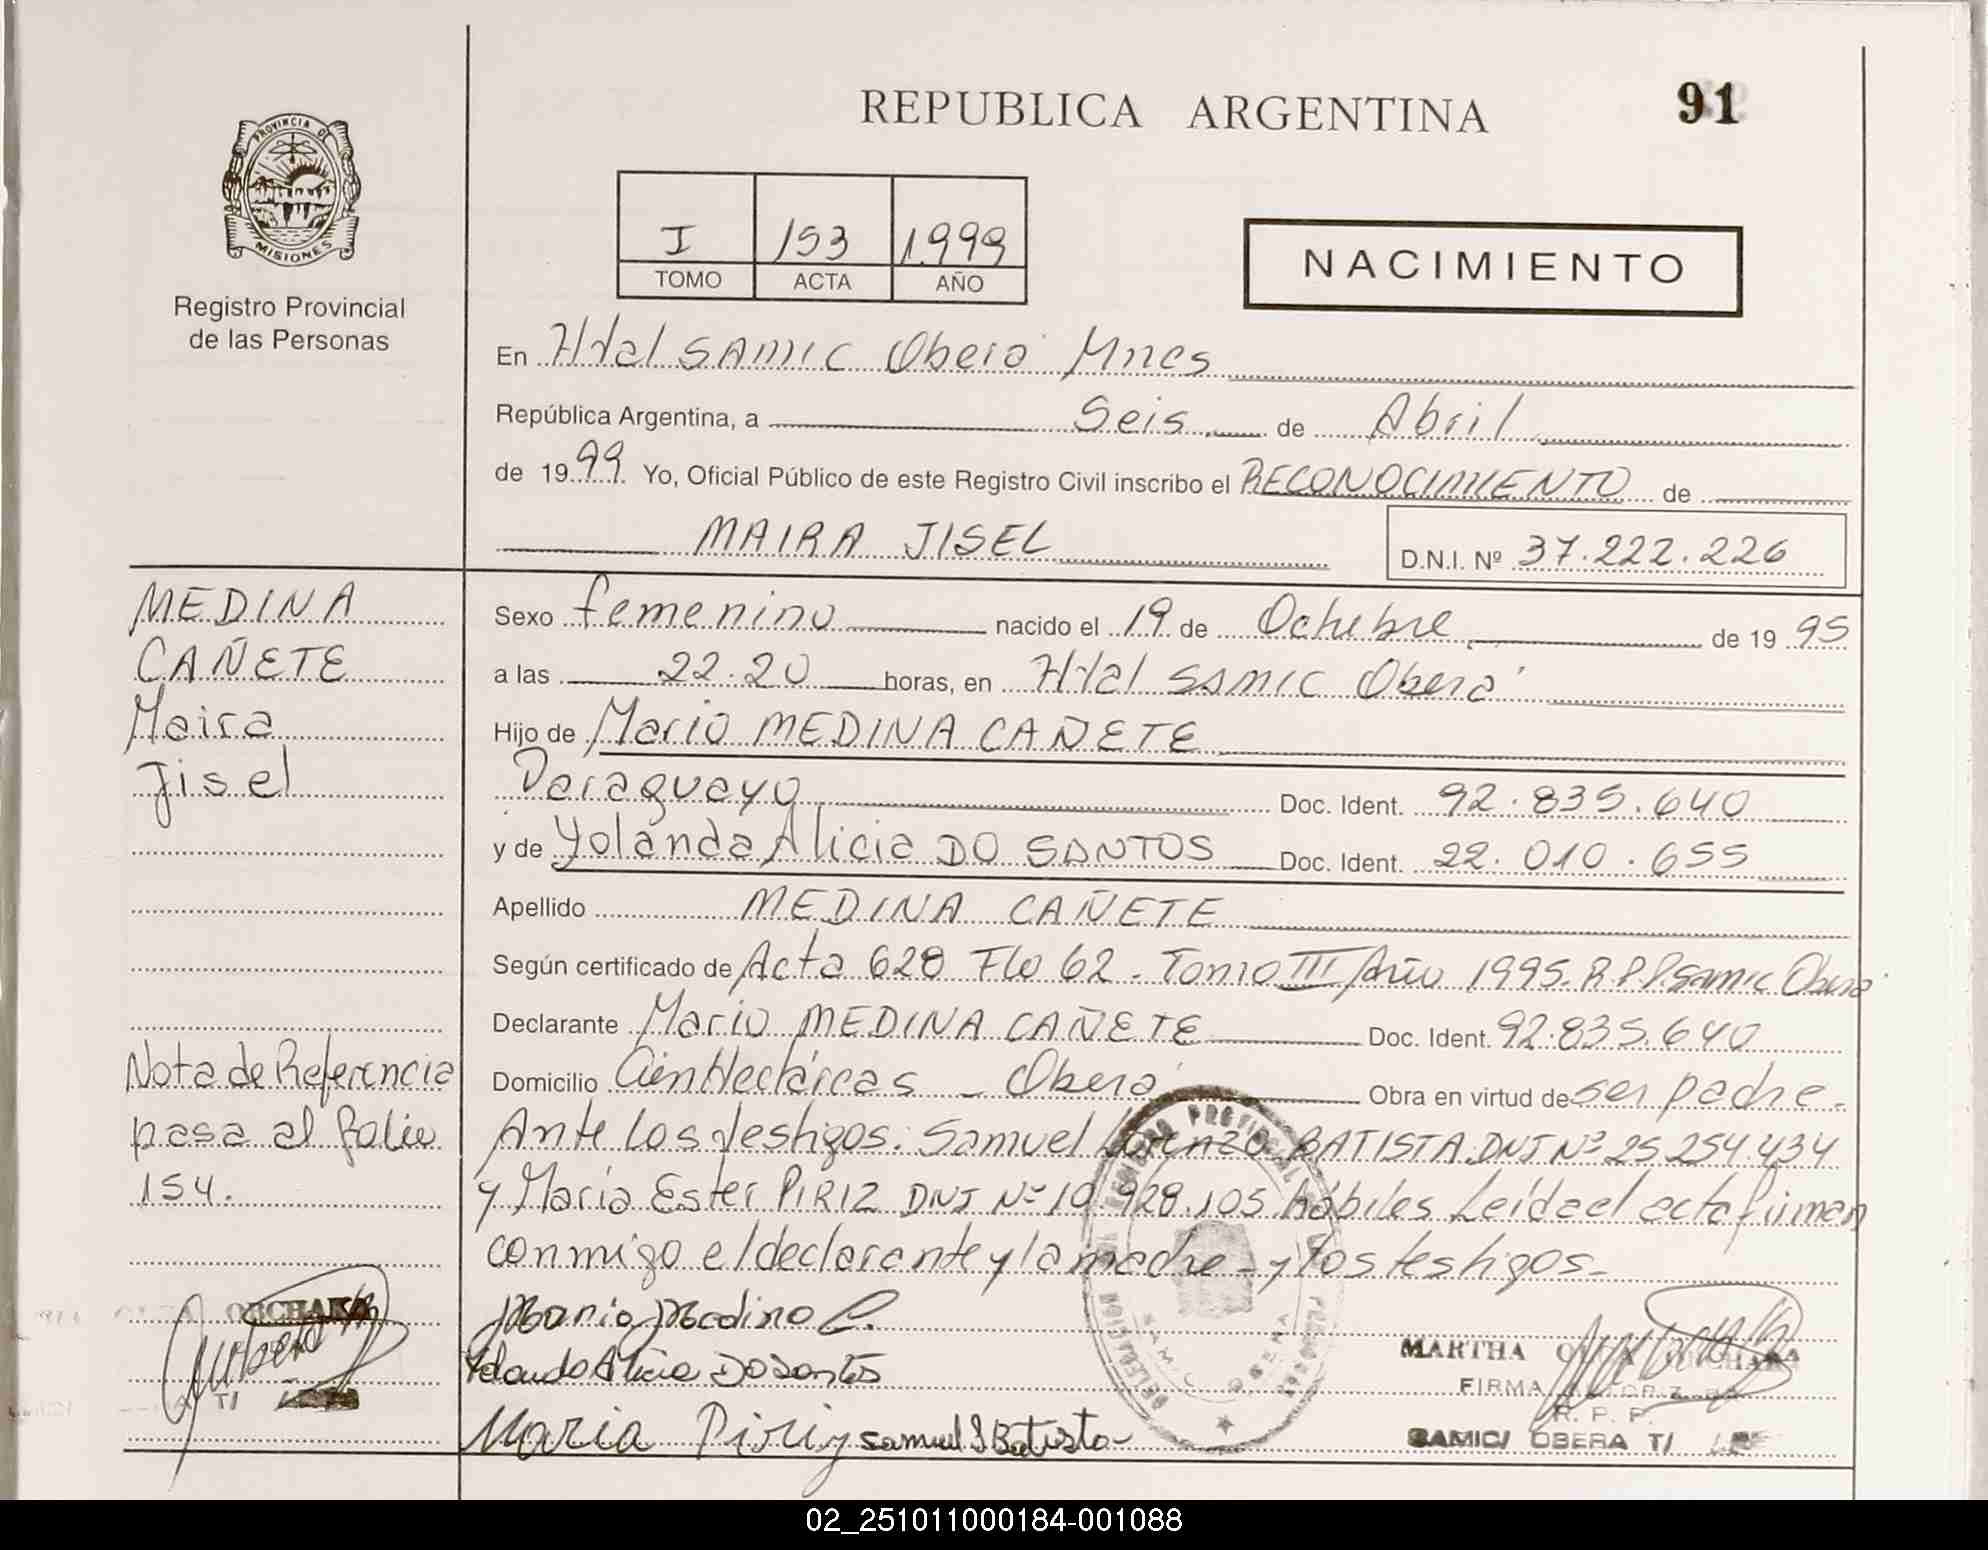 REPUBLICA ARGENTINA
91
PROVINCIA DE
MISIONES
Registro Provincial
de las Personas
I 153 1.999
TOMO ACTA AÑO
NACIMIENTO
En Htal SAMIC Oberá Mnes
República Argentina, a Seis de Abril
de 1999. Yo, Oficial Público de este Registro Civil inscribo el RECONOCIMIENTO de
MAIRA JISEL
D.N.I. Nº 37.222.226
MEDINA
CAÑETE
Maira
Jisel
Nota de Referencia
pasa al folio
154.
Sexo femenino nacido el 19 de Octubre de 1995
a las 22.20 horas, en Htal SAMIC Oberá
Hijo de Mario MEDINA CAÑETE
Paraguayo Doc. Ident. 92.835.640
y de Yolanda Alicia DO SANTOS Doc. Ident. 22.010.655
Apellido MEDINA CAÑETE
Según certificado de Acta 628 Flo 62. Tomo III Año 1995. R.P.P. Samic Oberá
Declarante Mario MEDINA CAÑETE Doc. Ident. 92.835.640
Domicilio Cien Hectáreas - Oberá Obra en virtud de ser padre.
Ante los testigos: Samuel Lorenzo BATISTA DNI Nº 25.254.434
y María Ester PIRIZ DNI Nº 10.928.105 hábiles Leída el acta firman
conmigo el declarante y la madre - y los testigos.
Mario Medina C.
Yolanda Alicia Do Santos
Maria Piriz Samuel L Batista
ORCHAKA
T/
DELEGACION
SAMIC OBERA
MARTHA
FIRMA
R. P. P.
SAMIC/ OBERA T/
02_251011000184-001088